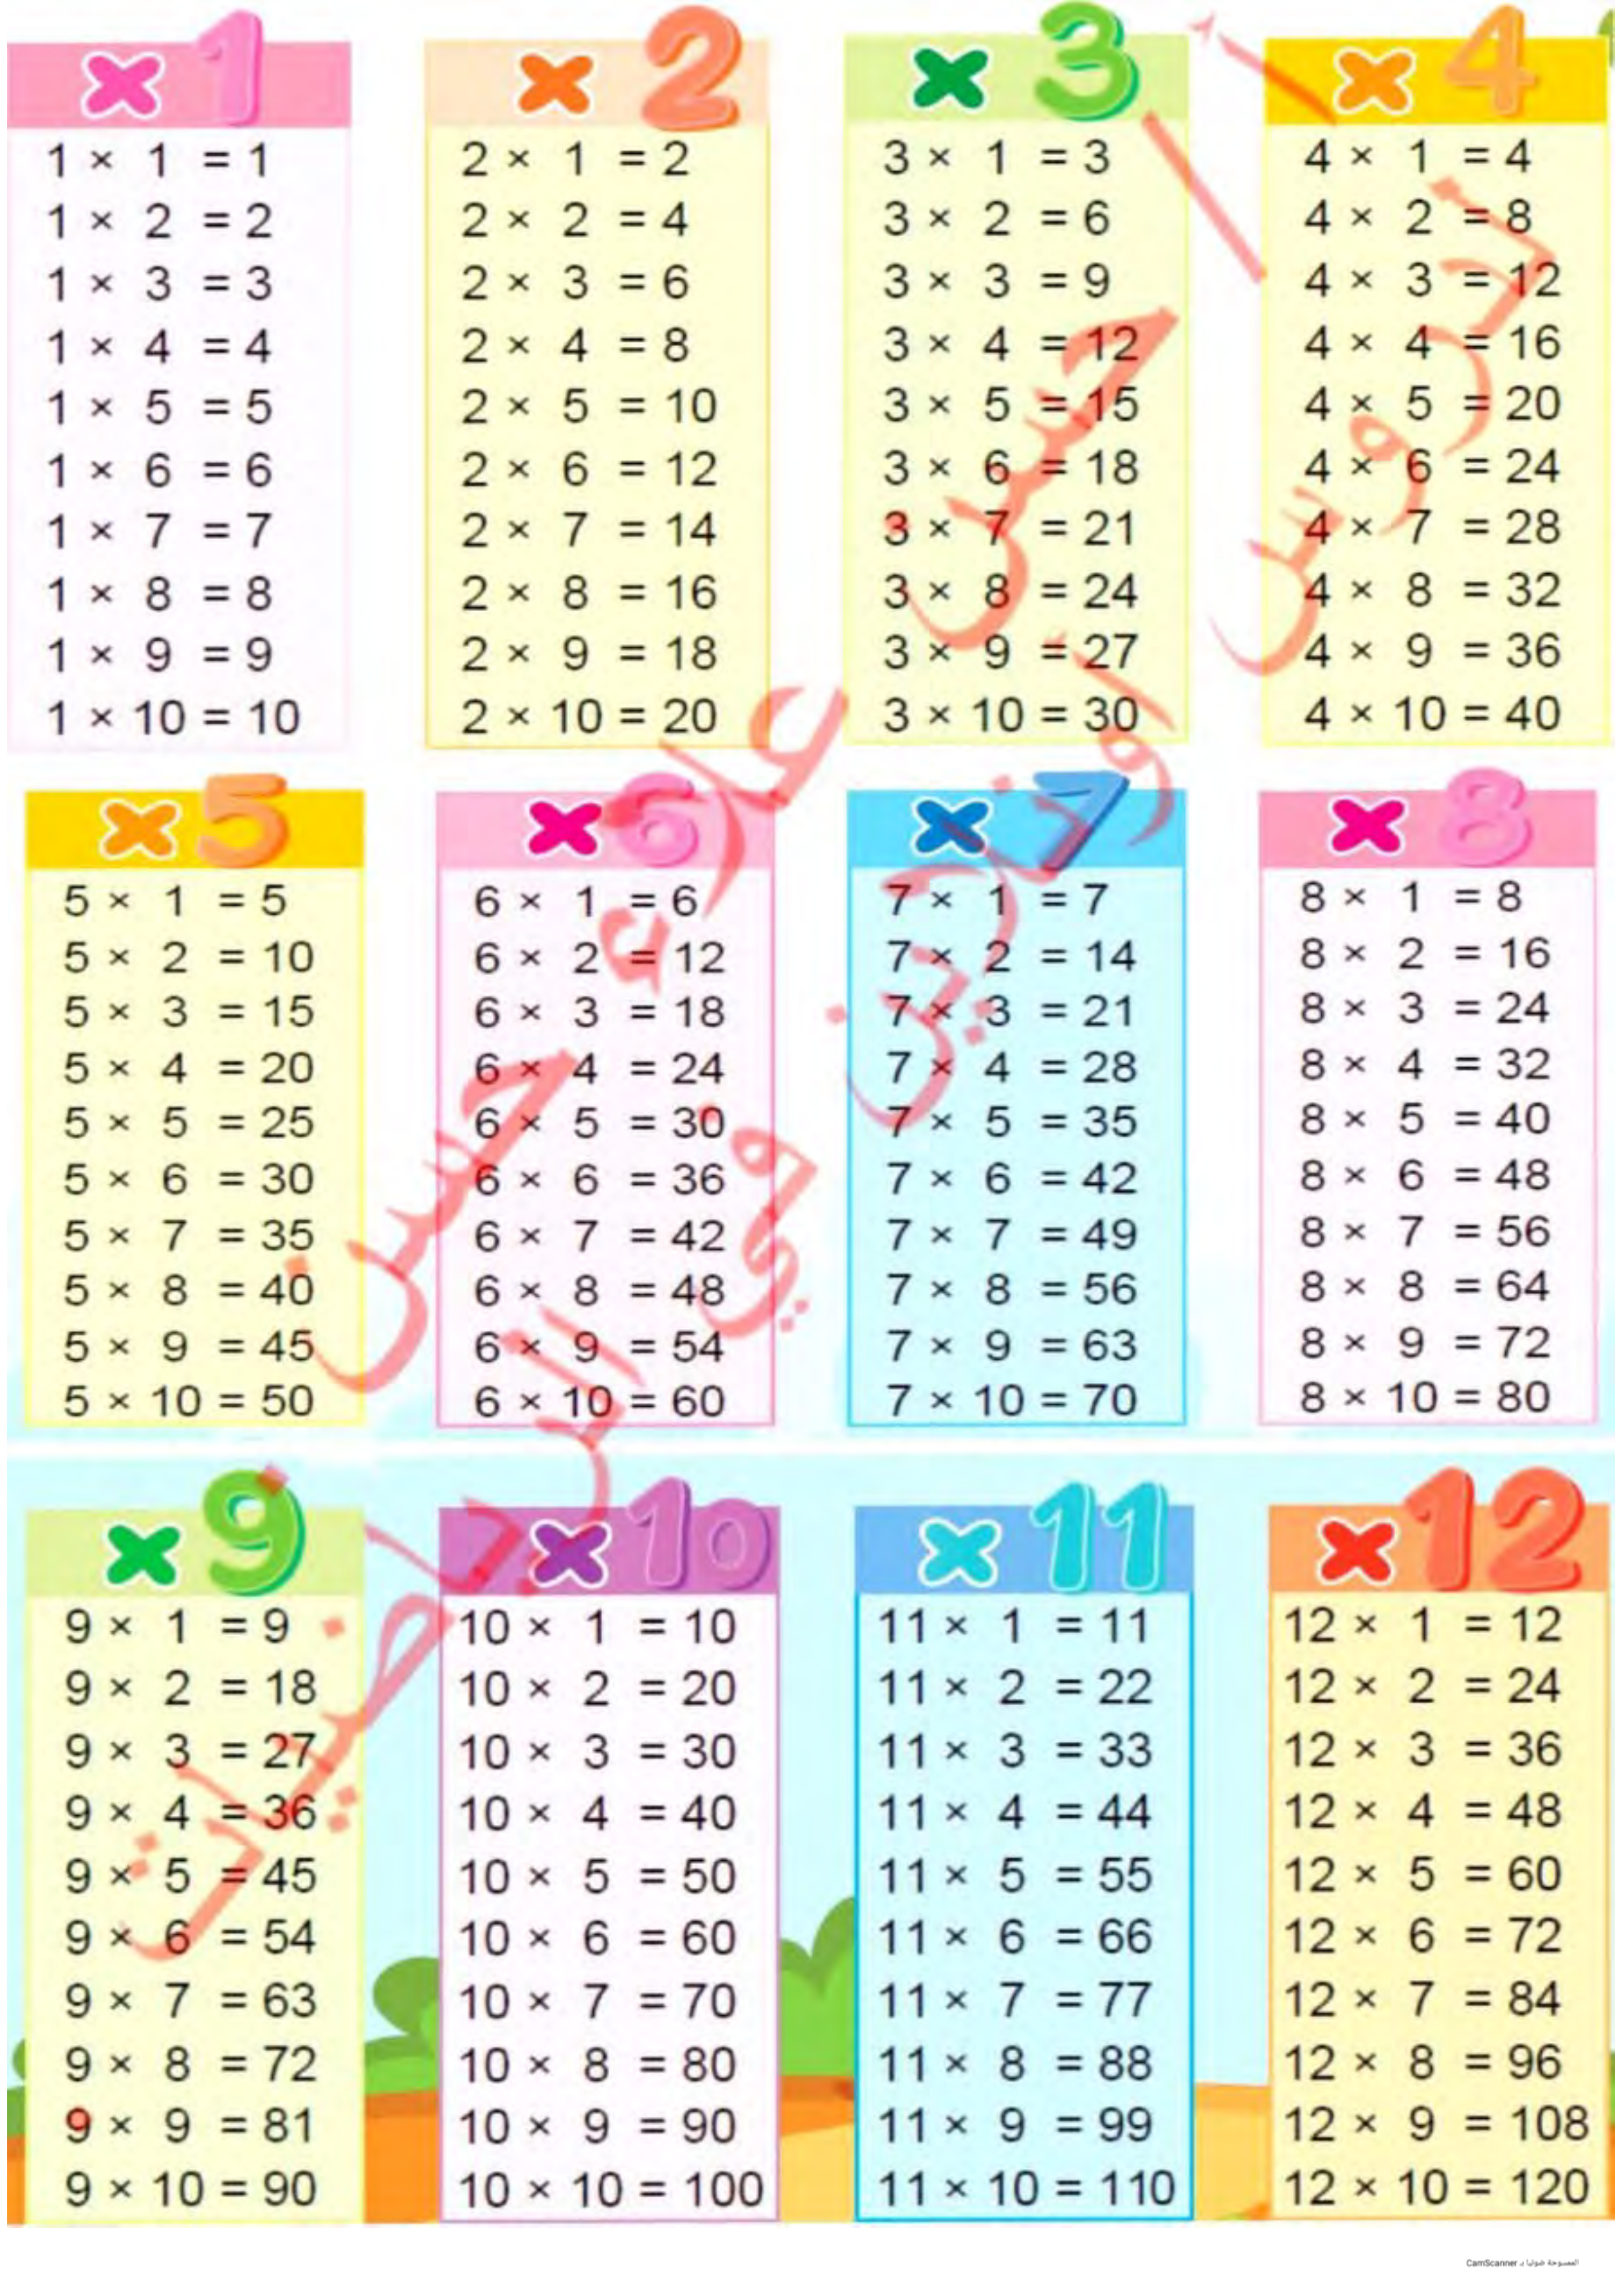 × 1
1 × 1 = 1
1 × 2 = 2
1 × 3 = 3
1 × 4 = 4
1 × 5 = 5
1 × 6 = 6
1 × 7 = 7
1 × 8 = 8
1 × 9 = 9
1 × 10 = 10
× 2
2 × 1 = 2
2 × 2 = 4
2 × 3 = 6
2 × 4 = 8
2 × 5 = 10
2 × 6 = 12
2 × 7 = 14
2 × 8 = 16
2 × 9 = 18
2 × 10 = 20
× 3
3 × 1 = 3
3 × 2 = 6
3 × 3 = 9
3 × 4 = 12
3 × 5 = 15
3 × 6 = 18
3 × 7 = 21
3 × 8 = 24
3 × 9 = 27
3 × 10 = 30
× 4
4 × 1 = 4
4 × 2 = 8
4 × 3 = 12
4 × 4 = 16
4 × 5 = 20
4 × 6 = 24
4 × 7 = 28
4 × 8 = 32
4 × 9 = 36
4 × 10 = 40
× 5
5 × 1 = 5
5 × 2 = 10
5 × 3 = 15
5 × 4 = 20
5 × 5 = 25
5 × 6 = 30
5 × 7 = 35
5 × 8 = 40
5 × 9 = 45
5 × 10 = 50
× 6
6 × 1 = 6
6 × 2 = 12
6 × 3 = 18
6 × 4 = 24
6 × 5 = 30
6 × 6 = 36
6 × 7 = 42
6 × 8 = 48
6 × 9 = 54
6 × 10 = 60
× 7
7 × 1 = 7
7 × 2 = 14
7 × 3 = 21
7 × 4 = 28
7 × 5 = 35
7 × 6 = 42
7 × 7 = 49
7 × 8 = 56
7 × 9 = 63
7 × 10 = 70
× 8
8 × 1 = 8
8 × 2 = 16
8 × 3 = 24
8 × 4 = 32
8 × 5 = 40
8 × 6 = 48
8 × 7 = 56
8 × 8 = 64
8 × 9 = 72
8 × 10 = 80
× 9
9 × 1 = 9
9 × 2 = 18
9 × 3 = 27
9 × 4 = 36
9 × 5 = 45
9 × 6 = 54
9 × 7 = 63
9 × 8 = 72
9 × 9 = 81
9 × 10 = 90
× 10
10 × 1 = 10
10 × 2 = 20
10 × 3 = 30
10 × 4 = 40
10 × 5 = 50
10 × 6 = 60
10 × 7 = 70
10 × 8 = 80
10 × 9 = 90
10 × 10 = 100
× 11
11 × 1 = 11
11 × 2 = 22
11 × 3 = 33
11 × 4 = 44
11 × 5 = 55
11 × 6 = 66
11 × 7 = 77
11 × 8 = 88
11 × 9 = 99
11 × 10 = 110
× 12
12 × 1 = 12
12 × 2 = 24
12 × 3 = 36
12 × 4 = 48
12 × 5 = 60
12 × 6 = 72
12 × 7 = 84
12 × 8 = 96
12 × 9 = 108
12 × 10 = 120
أ / حسن علاء حسن
الرياضيات
الممسوحة ضوئيا بـ CamScanner